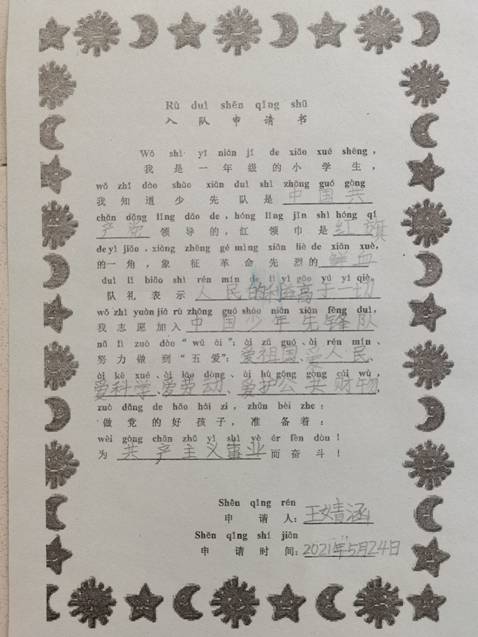 Rù duì shēn qǐng shū
入队申请书
Wǒ shì yī nián jí de xiǎo xué shēng,
我是一年级的小学生，
wǒ zhī dào shào xiān duì shì zhōng guó gòng
我知道少先队是中国共
chǎn dǎng lǐng dǎo de, hóng lǐng jīn shì hóng qí
产党领导的，红领巾是红旗
de yī jiǎo, xiàng zhēng gé mìng xiān liè de xiān xuè,
的一角，象征革命先烈的鲜血
duì lǐ biǎo shì rén mín de lì yì gāo yú yī qiè,
队礼表示人民的利益高于一切
wǒ zhì yuàn jiā rù zhōng guó shào nián xiān fēng duì,
我志愿加入中国少年先锋队
nǔ lì zuò dào “wǔ ài”: ài zǔ guó, ài rén mín,
努力做到“五爱”：爱祖国、爱人民、
ài kē xué, ài láo dòng, ài hù gōng gòng cái wù,
爱科学、爱劳动、爱护公共财物
zuò dǎng de hǎo hái zi, zhǔn bèi zhe:
做党的好孩子，准备着：
wèi gòng chǎn zhǔ yì shì yè ér fèn dòu!
为共产主义事业而奋斗！
Shēn qǐng rén
申请人：王婧涵
Shēn qǐng shí jiān
申请时间：2021年5月24日